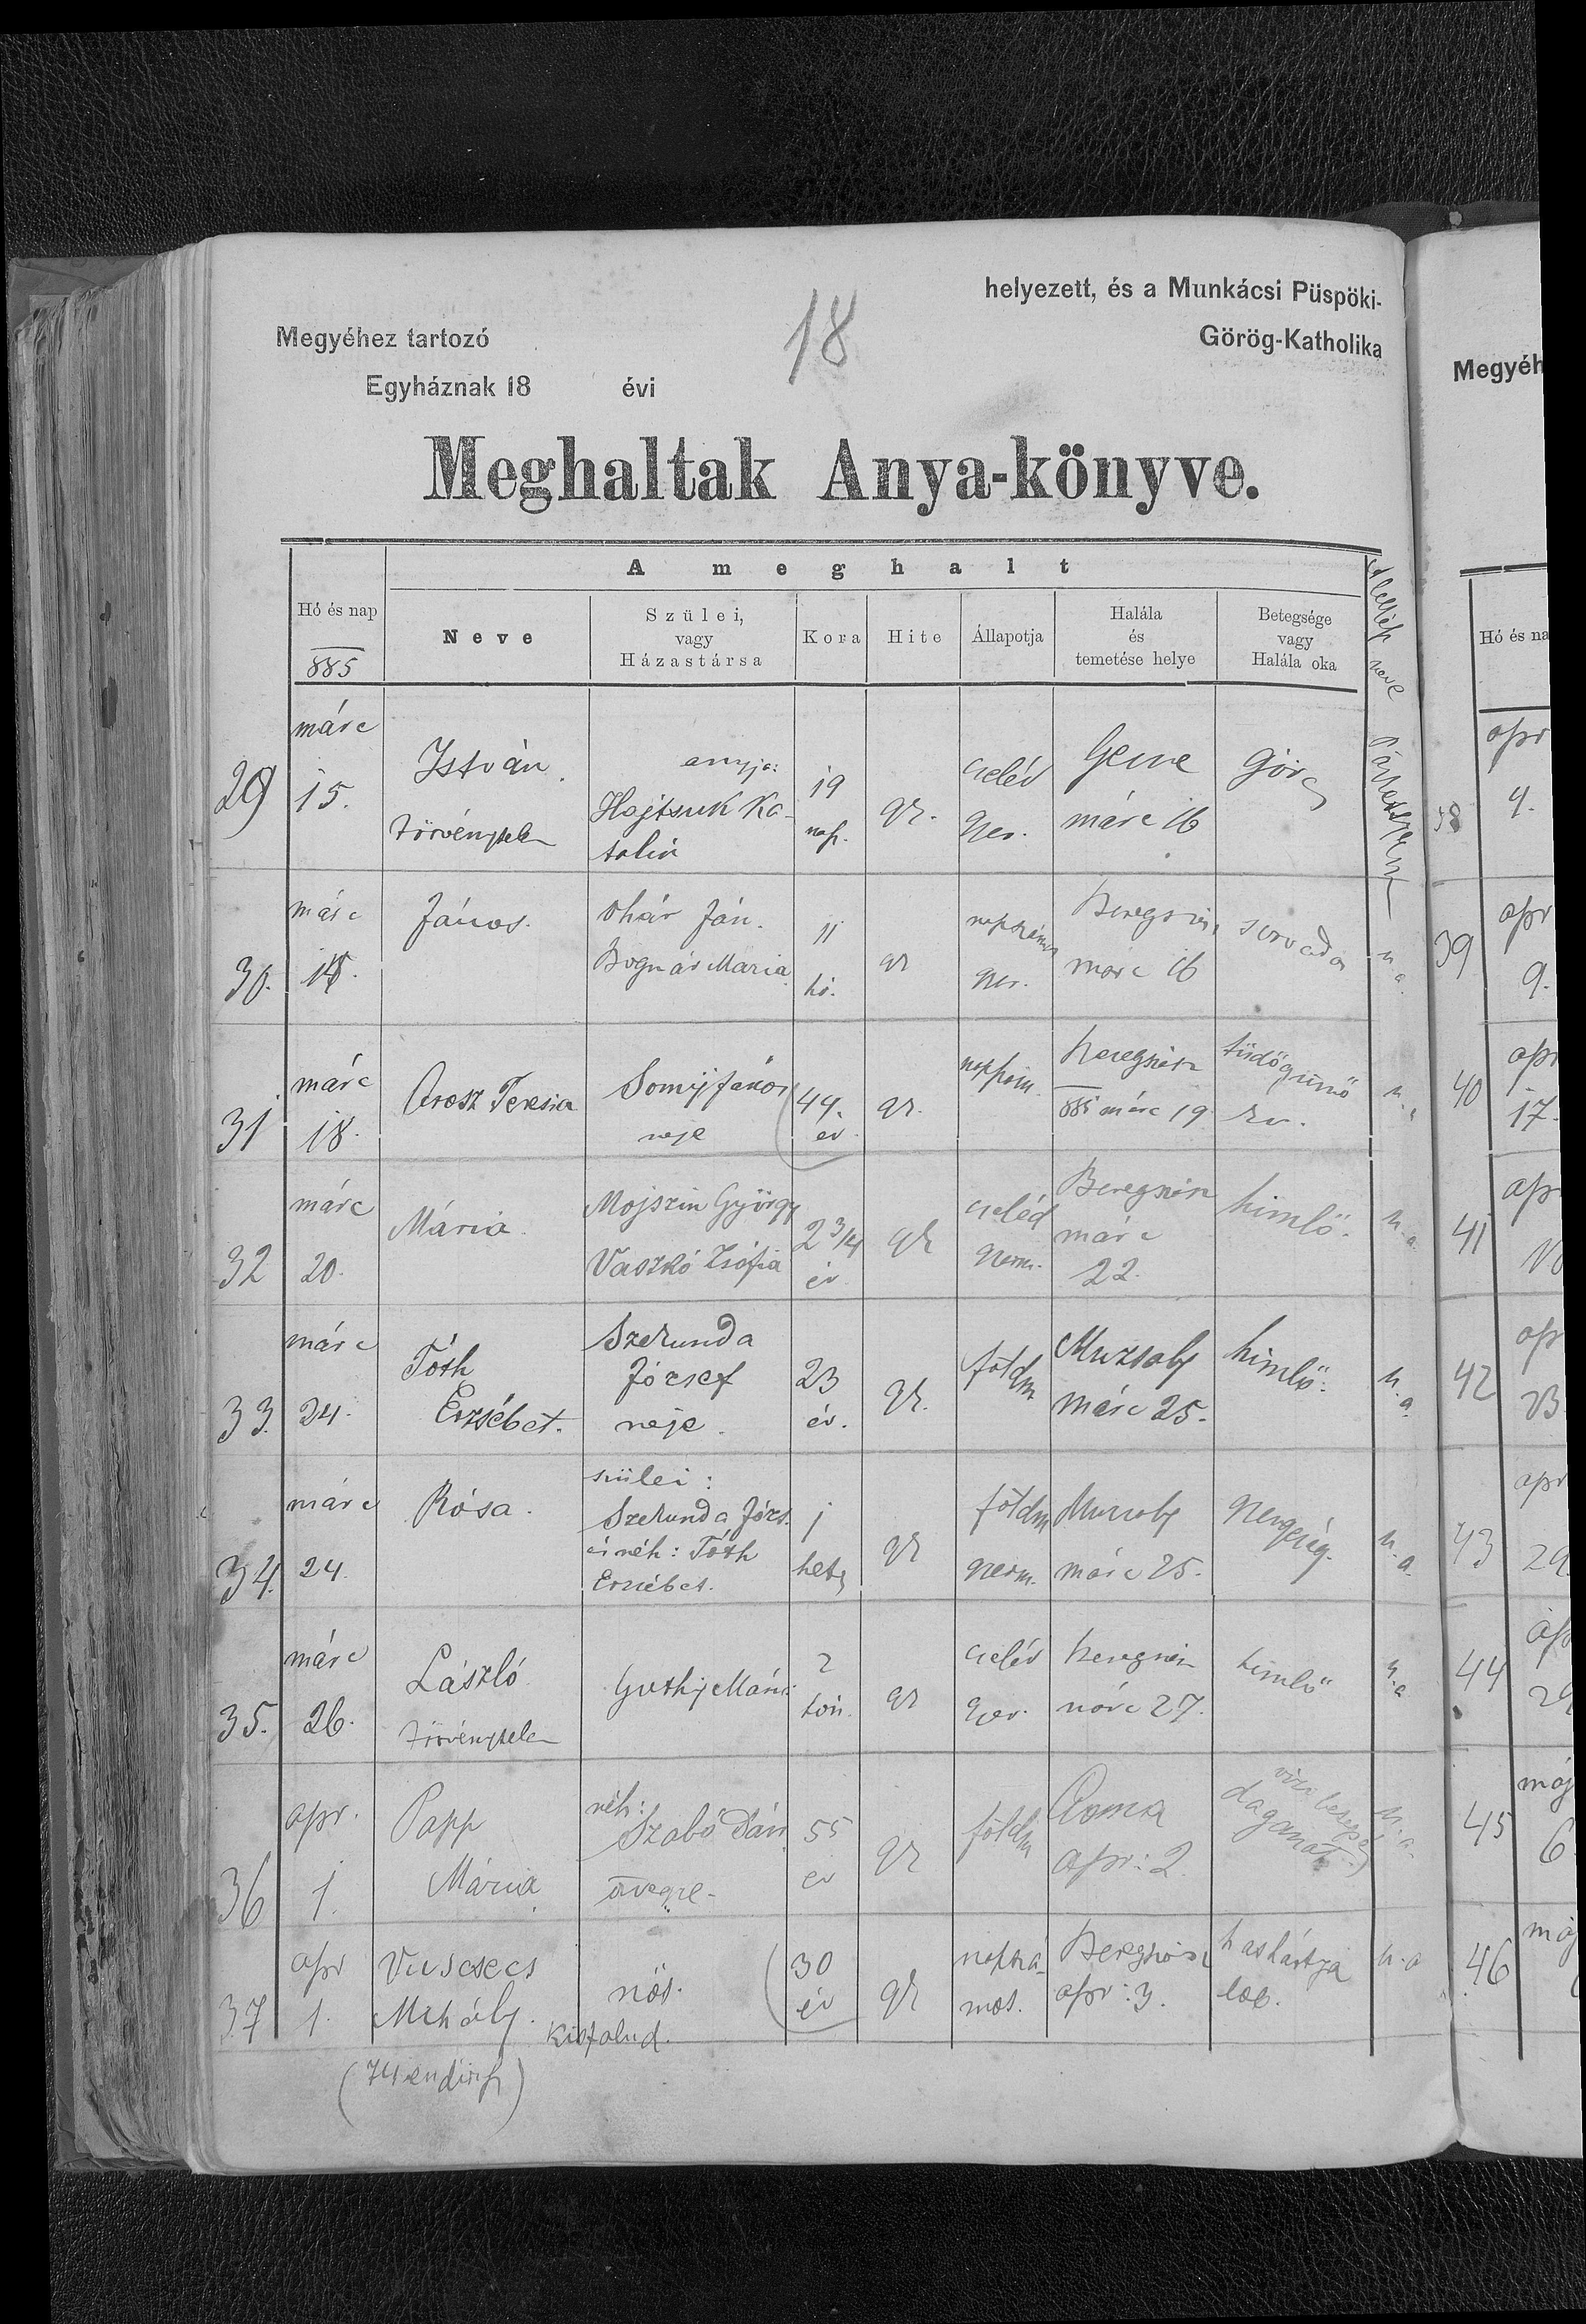 helyezett, és a Munkácsi Püspöki-
18
Megyéhez tartozó
Görög-Katholika
Egyháznak 18 évi
Meghaltak Anya-könyve.
A meghalt
Hó és nap
885
Neve
Szülei,
vagy
Házastársa
Kora
Hite
Állapotja
Halála
és
temetése helye
Betegsége
vagy
Halála oka
neve
29
márc
15.
István
törvénytelen
anyja:
Hajtsuk Ka-
talin
19
nap.
gk.
cseléd
gyer.
Gene
márc 16
görcs
30.
márc
János.
Ohár Ján.
Bognár Mária
11
hó.
gk
gyer.
Beregszász
márc 16
sorvadás
n. a.
31
márc
18.
Orosz Teresia
János
neje
44.
év
gk.
napszám.
Beregszász
885 márc 19
tüdőgümő
n. a.
32
márc
20.
Mária
Mojszin György
Vaszkó Zsófia
2 3/4
év
gk
cseléd
gyerm.
Beregszász
márc
22.
himlő.
n. a.
33.
márc
24.
Tóth
Erzsébet.
Szekunda
József
neje.
23
év.
gk.
földm
Muzsaly
márc 25.
himlő.
n. a.
34.
márc
24.
Rósa.
szülei:
Szekunda Józs.
és néh: Tóth
Erzsébet.
1
hetes
gk
földm
gyerm.
Muzsaly
márc 25.
gyengeség.
n. a.
35.
márc
26.
László
törvénytelen
Guthy Mária
2
gk
cseléd
gyer.
Beregszász
márc 27.
himlő
n. a
36
apr.
1.
Papp
Mária
néh:
Szabó Dán
özvegye.
55
év
gk
földm
apr: 2.
daganat
n. a.
37
apr
1.
Vuscsecs
Mihály.
nős.
Kisfalud.
30
év
gk
napszá-
mos.
Beregszász
apr: 3.
hashártya
lob.
n. a
Megyéh
Hó és na
38
apr
4.
39
apr
9.
40
apr
17.
41
apr
42
apr
23
43
apr
29.
44
apr
45
máj
6
46
máj